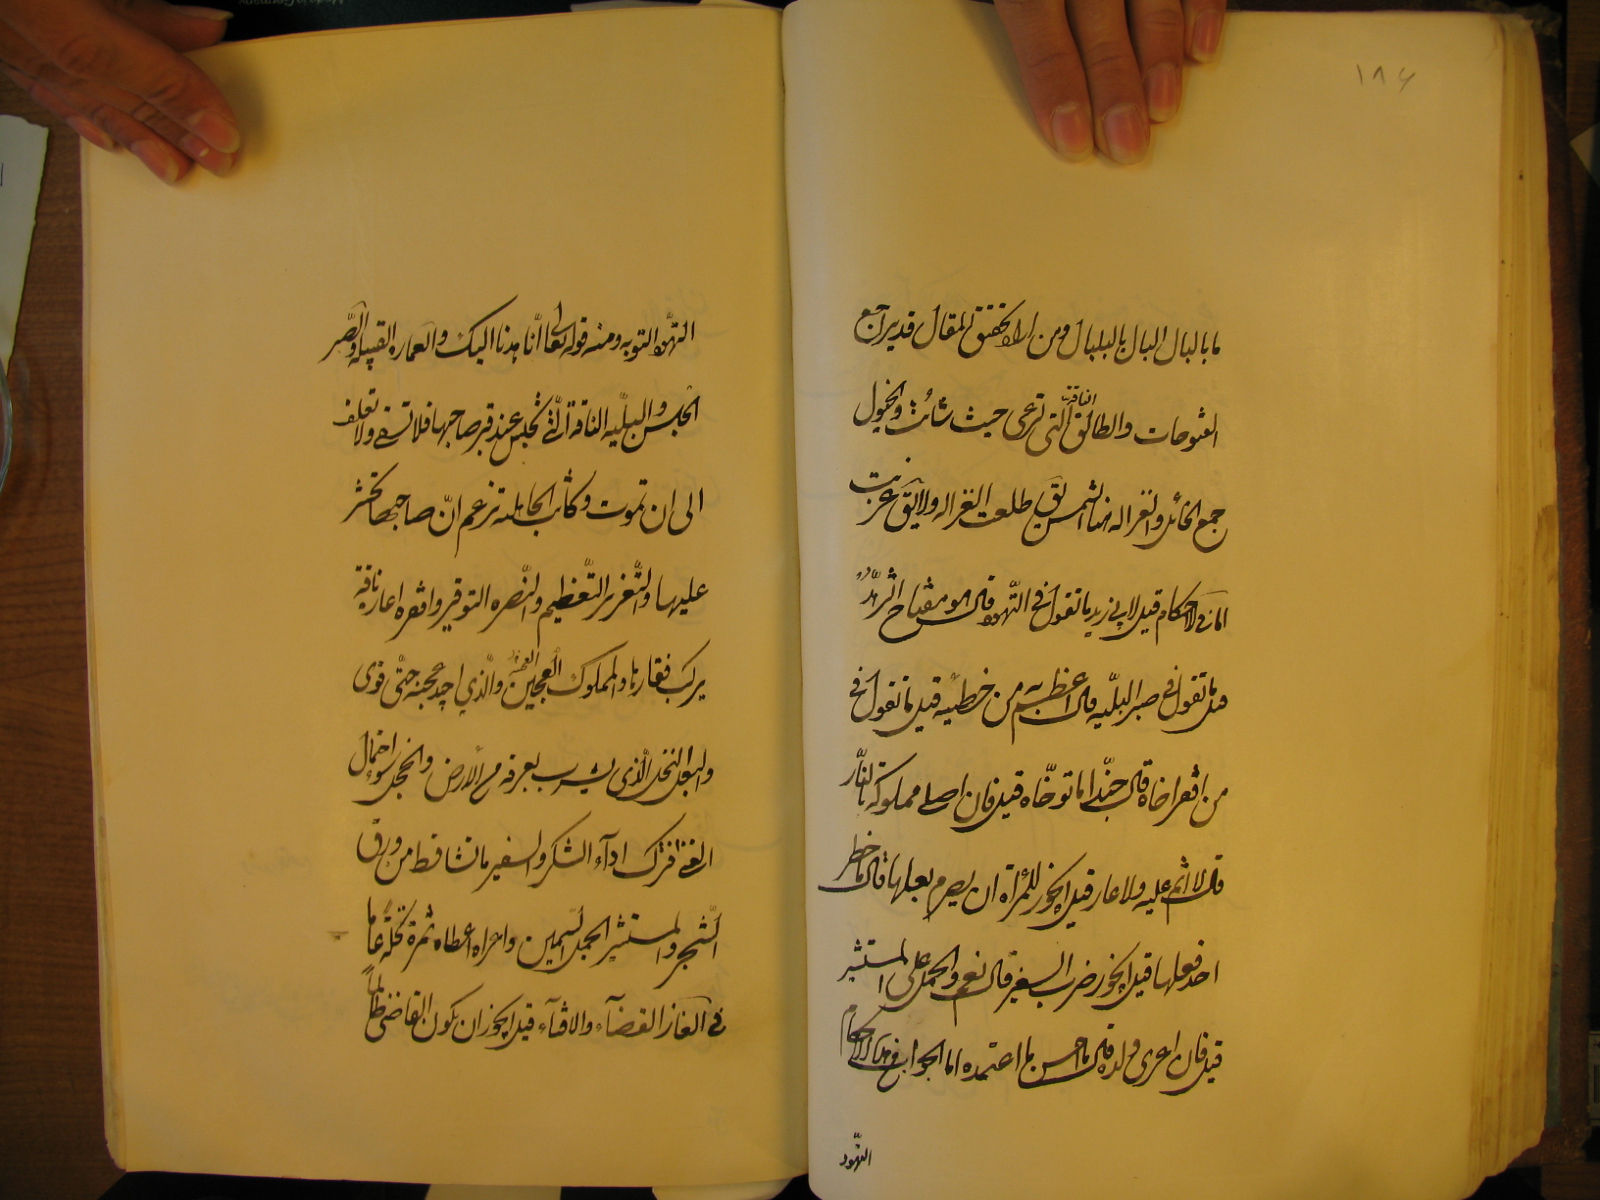 ۱۸۶
ما بالبال البال بالبلبال ومن اراد تحقيق المقال قد يراجع
الفتوحات والطالق الناقة الّتى ترعى حيث شائت والخيول
جمع الخائل والغزاله هنا الشمس يق طلعت الغزاله ولا يق غربت
امّا فى الاحكام قيل لابي زيد ما تقول فى التّهوّد قال هو مفتاح التّزهّد
قيل ما تقول فى صبر البليّه قال اعظم به من خطيّه قيل ما تقول فى
من افقر اخاه قال حبّذا ما توخّاه قيل فان اصلى مملوكه بالنّار
قال لا اثم عليه ولا عار قيل ايجوز للمرأة ان يصرم بعلها قال ما خطر
احد فعلها قيل ايجوز ضرب السفير قال نعم والحمل على المستشير
قيل فان اعرى ولده قال ما احسن ما اعتمده اما الجواب فى هذا الاحكام
التّهوّد
التهوّد التوبه ومنه قوله تعالى انّا هدنا اليك والعماره القبيله والصّبر
الحبس والبليّه الناقة الّتى تحبس عند قبر صاحبها فلا تسقى ولا تعلف
الى ان تموت وكانت الجاهليه تزعم انّ صاحبها تحشر
عليها والتّعزير التّعظيم والنّصره التوقير وافقره اعار ناقة
يركب فقارها والمملوك العجين العجين والّذي اجيد عجنه حتّى قوى
والبعل النخل الّذى يشرب بعروقه من الارض والخجل سوء احتمال
الغنى فترك اداء الشكر والسفير ما تساقط من ورق
الشّجر والمستشير الجمل السّمين واعراه اعطاه ثمرة نخلة عاما
فى الغاز القضآء والافتآء قيل ايجوز ان يكون القاضى ظالماً